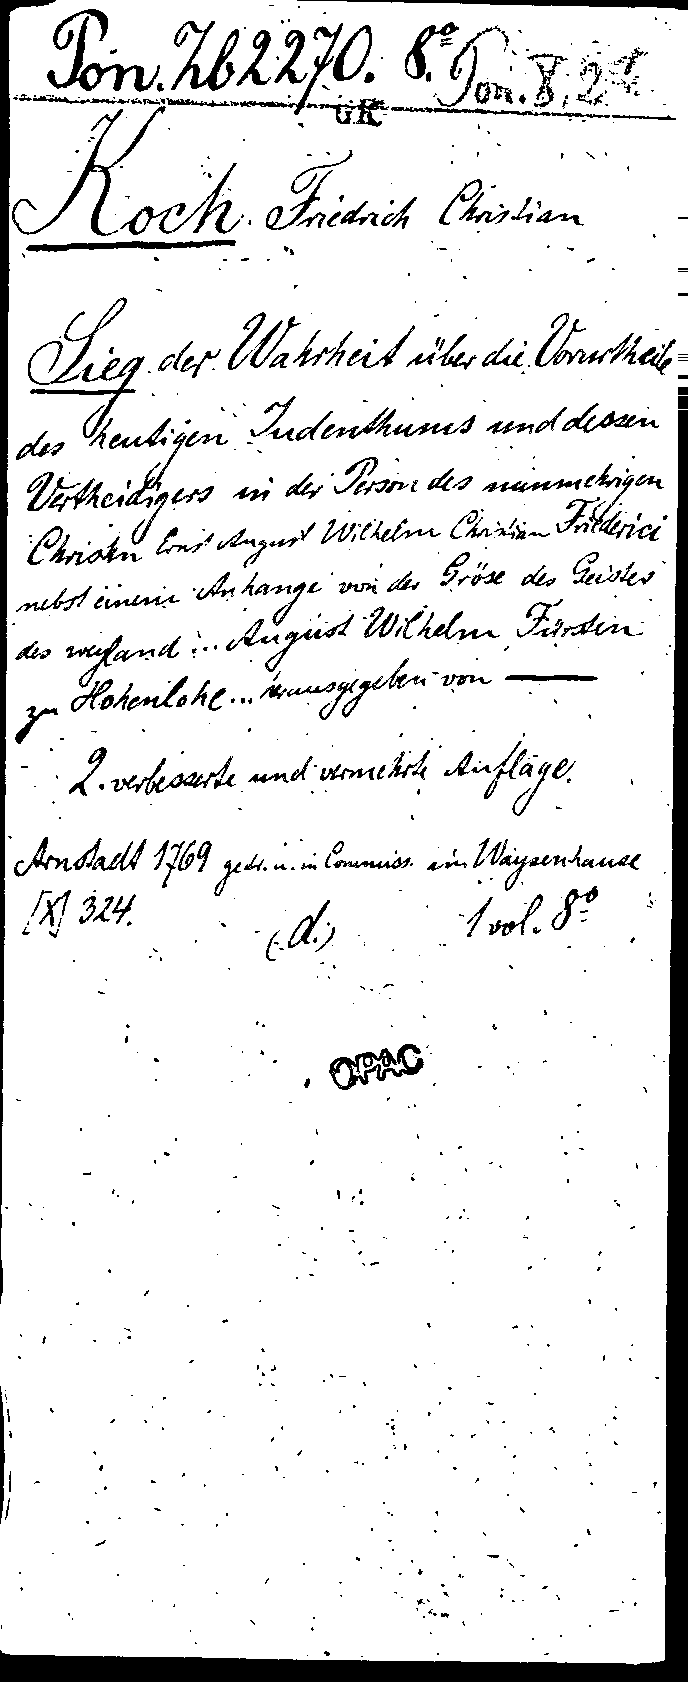 Pon. Zb 2270. 8º Pon. 8, 2
GK
Koch. Friedrich Christian
Sieg der Wahrheit über die Vorurtheile
des heutigen Judenthums und dessen
Vertheidigers in der Person des nunmehrigen
Christen Ernst August Wilhelm Christian Friederici
nebst einem Anhange von der Gröse des Geistes
des weyland ... August Wilhelm Fürsten
zu Hohenlohe ... herausgegeben von —
2. verbesserte und vermehrte Auflage.
Arnstadt 1769 gedr. u. in Commiss. im Waysenhause
[X] 324. (d.) 1 vol. 8º
OPAC